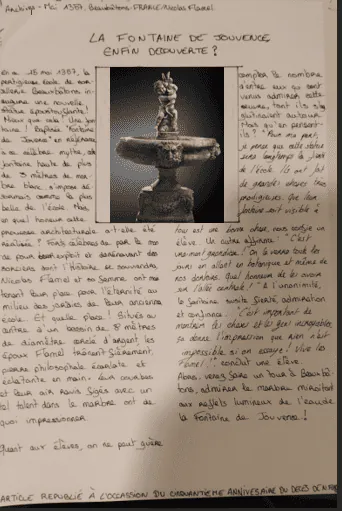 Archive - Mai 1987, Beauxbâtons. FRANCE/Nicolas Flamel
LA FONTAINE DE JOUVENCE
ENFIN DÉCOUVERTE ?
En ce 18 mai 1987, la
prestigieuse école de sor-
cellerie Beauxbâtons in-
augure une nouvelle
statue époustouflante !
Mieux que cela ! Une fon-
taine ! Baptisée "Fontaine
de Jouvence" en référence
à ce célèbre mythe, la
fontaine haute de plus
de 3 mètres de mar-
bre blanc s'impose dé-
sormais comme la plus
belle de l'école. Mais
en quel honneur cette
prouesse architecturale a-t-elle été
réalisée ? Forts célèbres de par le mon-
de pour exploit et dorénavant des
sorciers dont l'Histoire se souviendra
Nicolas Flamel et sa femme ont main-
tenant leur place pour l'éternité au
milieu des jardins de leur ancienne
école. Et quelle place ! Situés au
centre d'un bassin de 8 mètres
de diamètre cerclé d'argent, les
époux Flamel trônent fièrement,
pierre philosophale écarlate et
éclatante en main. Leur courbes
et leur air ravis figés avec un
tel talent dans le marbre ont de
quoi impressionner.
Quant aux élèves, on ne peut guère
compter le nombre
d'entre eux qui sont
venus admirer cette
oeuvre, tant ils s'a-
glutinaient autour.
Mais qu'en pensent-
ils ? "Pour ma part,
je pense que cette statue
sera longtemps la fierté
de l'école. Ils ont fait
de grandes choses, très
prodigieuses. Que leur
fontaine soit visible à
tous est une bonne chose, nous confie un
élève. Un autre affirme : "C'est
une grandiose ! On la verra tous les
jours en allant en botanique et même de
nos dortoirs. Quel honneur de les avoir
sur l'allée centrale !" À l'unanimité,
la fontaine suscite fierté, admiration
et confiance. "C'est important de
montrer les choses et les gens incroyables,
ça donne l'impression que rien n'est
impossible si on essaye ! Vive les
Flamel !" conclut une élève.
Alors, venez faire un tour à Beauxbâ-
tons, admirer le marbre miroitant
aux reflets lumineux de l'eau de
la Fontaine de Jouvence !
ARTICLE REPUBLIÉ À L'OCCASION DU CINQUANTIÈME ANNIVERSAIRE DU DÉCÈS DE N.